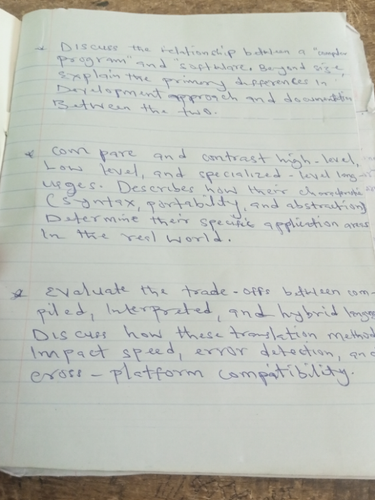 * Discuss the relationship between a "computer
program" and "software. Beyond size,
Explain the primary differences in
Development approach and documentation
Between the two.
* Compare and contrast high-level,
Low level, and specialized-level lang
uages. Describes how their
(syntax, portability, and abstraction)
Determine their specific application areas
In the real world.
* Evaluate the trade-offs between com-
piled, Interpreted, and hybrid
Discuss how these translation method
Impact speed, error detection, and
cross-platform compatibility.